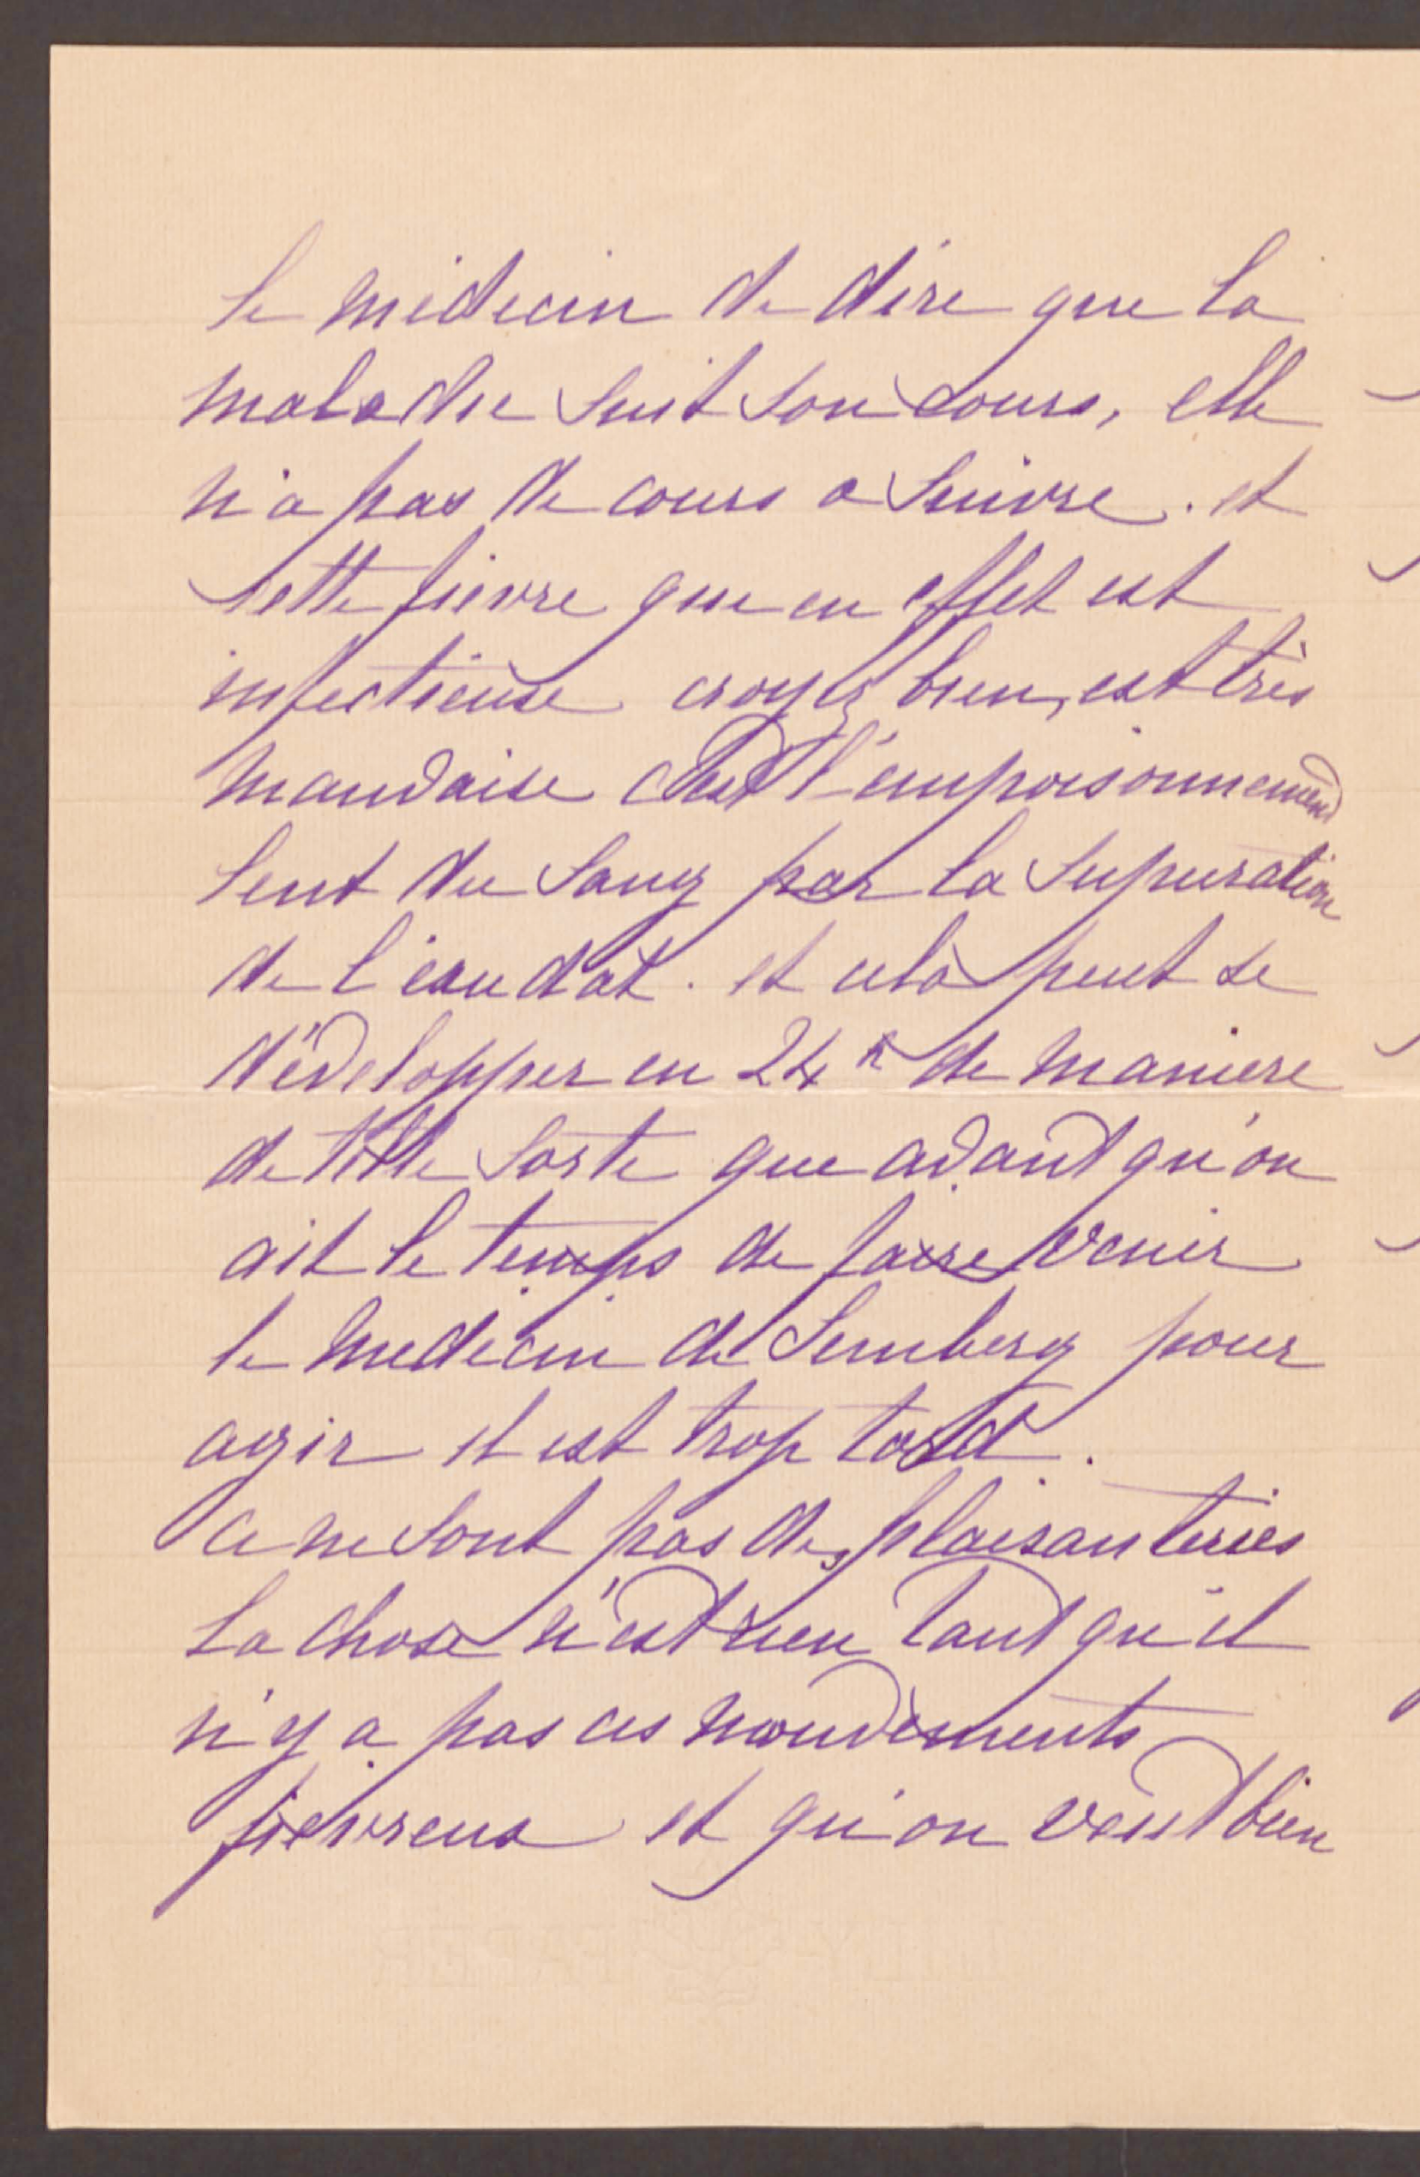 le médecin de dire que la
maladie suit son cours, elle
n'a pas de cours a suivre. et
cette fievre que en effet est
infectieuse croyez bien, est très
mauvaise c'est l'empoisonnement
lent du sang par la supuration
de l'exudat. et cela peut se
développer en 24 h de maniere
de telle sorte que avant qu'on
ait le temps de faire venir
le medecin de Lemberg pour
agir il est trop tard.
Ce ne sont pas des plaisanteries
La chose n'est rien tant qu'il
n'y a pas ces mouvements
fievreux et qu'on veut bien
LILY PAPER